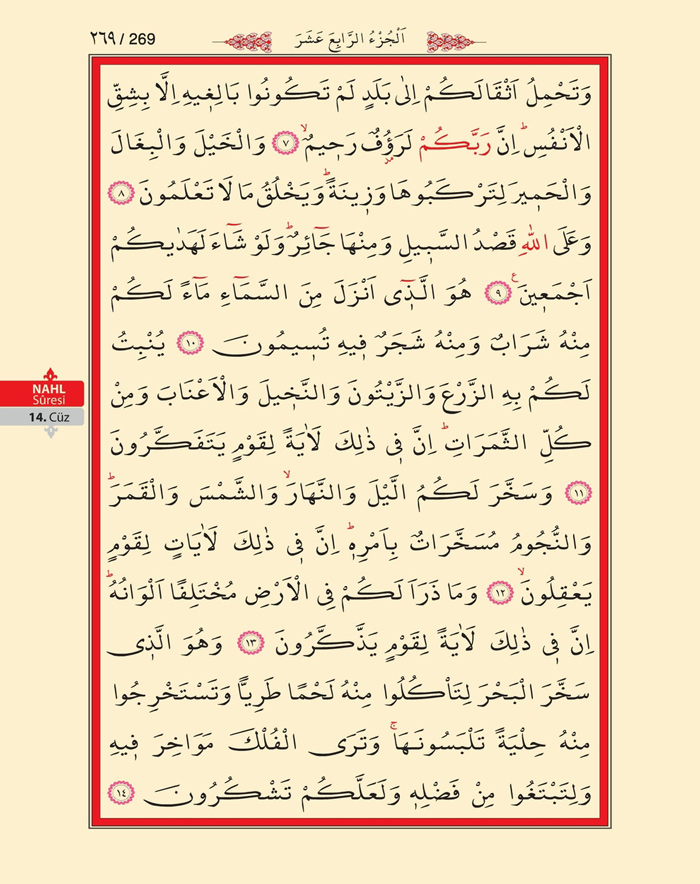 ٢٦٩ / 269
اَلْجُزْءُ الرَّابِعَ عَشَرَ
وَتَحْمِلُ اَثْقَالَكُمْ اِلٰى بَلَدٍ لَمْ تَكُونُوا بَالِغ۪يهِ اِلَّا بِشِقِّ
الْاَنْفُسِۜ اِنَّ رَبَّكُمْ لَرَؤُ۫فٌ رَح۪يمٌۙ ﴿٧﴾ وَالْخَيْلَ وَالْبِغَالَ
وَالْحَم۪يرَ لِتَرْكَبُوهَا وَز۪ينَةًۜ وَيَخْلُقُ مَا لَا تَعْلَمُونَ ﴿٨﴾
وَعَلَى اللّٰهِ قَصْدُ السَّب۪يلِ وَمِنْهَا جَٓائِرٌۜ وَلَوْ شَٓاءَ لَهَدٰيكُمْ
اَجْمَع۪ينَ۟ ﴿٩﴾ هُوَ الَّذ۪ٓي اَنْزَلَ مِنَ السَّمَٓاءِ مَٓاءً لَكُمْ
مِنْهُ شَرَابٌ وَمِنْهُ شَجَرٌ ف۪يهِ تُس۪يمُونَ ﴿١٠﴾ يُنْبِتُ
لَكُمْ بِهِ الزَّرْعَ وَالزَّيْتُونَ وَالنَّخ۪يلَ وَالْاَعْنَابَ وَمِنْ
كُلِّ الثَّمَرَاتِۜ اِنَّ ف۪ي ذٰلِكَ لَاٰيَةً لِقَوْمٍ يَتَفَكَّرُونَ
﴿١١﴾ وَسَخَّرَ لَكُمُ الَّيْلَ وَالنَّهَارَۙ وَالشَّمْسَ وَالْقَمَرَۜ
وَالنُّجُومُ مُسَخَّرَاتٌ بِاَمْرِه۪ۜ اِنَّ ف۪ي ذٰلِكَ لَاٰيَاتٍ لِقَوْمٍ
يَعْقِلُونَۙ ﴿١٢﴾ وَمَا ذَرَاَ لَكُمْ فِي الْاَرْضِ مُخْتَلِفًا اَلْوَانُهُۜ
اِنَّ ف۪ي ذٰلِكَ لَاٰيَةً لِقَوْمٍ يَذَّكَّرُونَ ﴿١٣﴾ وَهُوَ الَّذ۪ي
سَخَّرَ الْبَحْرَ لِتَأْكُلُوا مِنْهُ لَحْمًا طَرِيًّا وَتَسْتَخْرِجُوا
مِنْهُ حِلْيَةً تَلْبَسُونَهَاۚ وَتَرَى الْفُلْكَ مَوَاخِرَ ف۪يهِ
وَلِتَبْتَغُوا مِنْ فَضْلِه۪ وَلَعَلَّكُمْ تَشْكُرُونَ ﴿١٤﴾
NAHL
Sûresi
14. Cüz